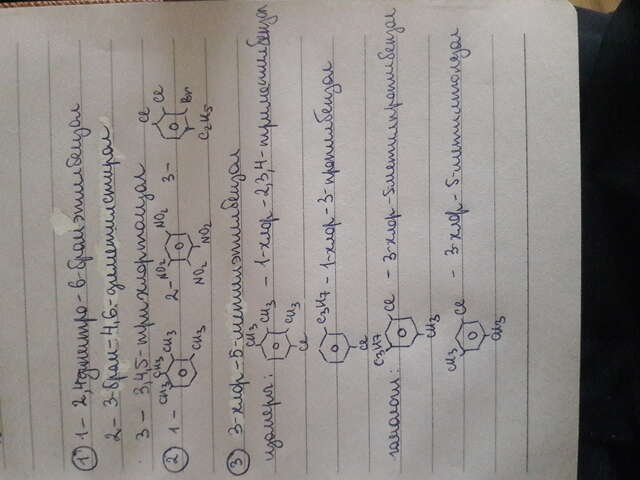 ① 1 - 2,4динитро-6-бромэтилбензол
2 - 3-бром-4,6-диметилстирол
3 - 3,4,5-трихлортолуол
② 1 - CH3 CH3 CH3 CH3 2 - NO2 NO2 NO2 NO2 3 - Cl Cl Br C2H5
③ 3-хлор-5-метилэтилбензол
изомеры: CH3 CH3 CH3 Cl - 1-хлор-2,3,4-триметилбензол
C3H7 Cl - 1-хлор-3-пропилбензол
гомологи: C3H7 Cl CH3 - 3-хлор-5метилпропилбензол
CH3 Cl CH3 - 3-хлор-5-метилтолуол